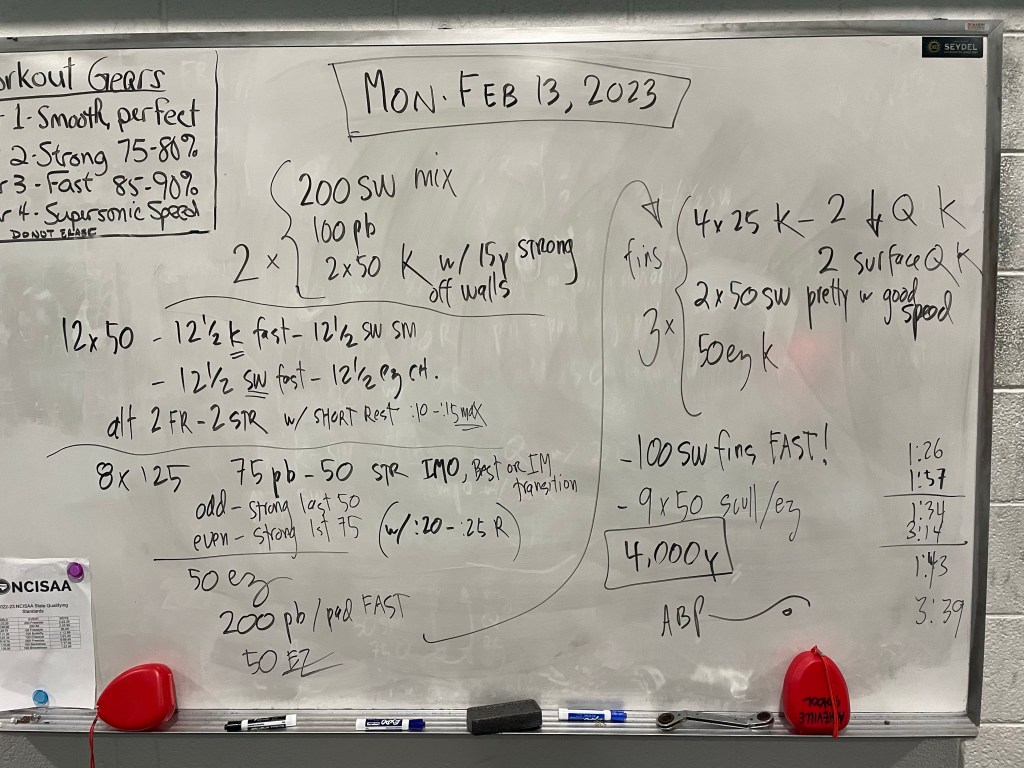 SEYDEL
orkout Gears
1-Smooth, perfect
2-Strong 75-80%
r 3-Fast 85-90%
r 4-Supersonic Speed
DO NOT ERASE
MON. FEB 13, 2023
2 x
200 SW mix
100 pb
2x50 K w/ 15y strong
off walls
12x50 - 12½ K fast - 12½ SW SM
- 12½ SW fast - 12½ ez CH.
alt 2 FR - 2 STR w/ SHORT REST :10-:15 max
8x125 75 pb - 50 STR IMO, Best or IM
transition
odd - strong last 50
even - strong 1st 75 (w/ :20-:25 R)
50 ez
200 pb/pad FAST
50 EZ
fins
3x
4x25 K - 2 ↓ Q K
2 surface Q K
2x50 SW pretty w good
speed
50 ez K
-100 SW fins FAST!
- 9x50 scull/ez
4,000y
ABP
1:26
1:57
1:34
3:14
1:43
3:39
NCISAA
2022-23 NCISAA State Qualifying
Standards
EXPO
ASHEVILLE
SCHOOL